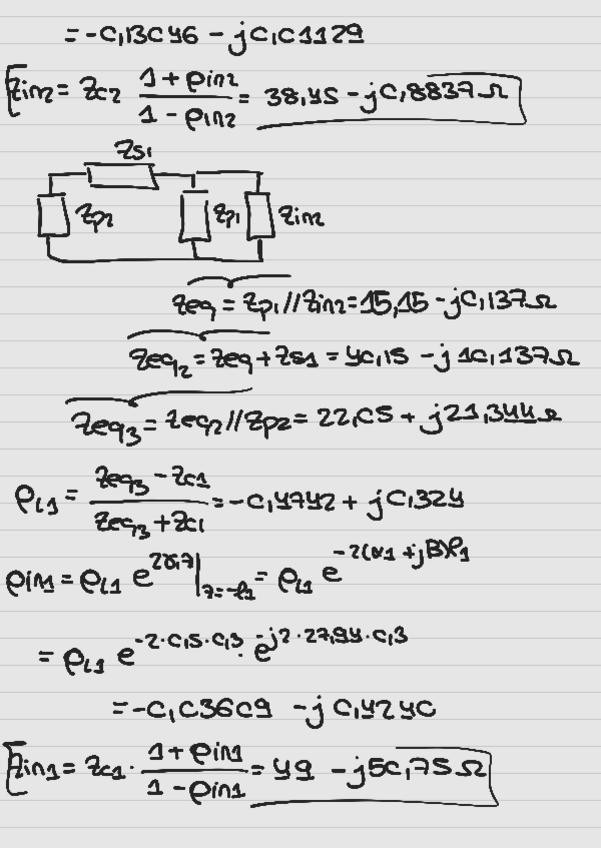 = -0,13046 - j0,01129
Zin2 = Zc2 (1 + ρin2)/(1 - ρin2) = 38,45 - j0,8837 Ω
Zs1
Zp2 Zp1 Zin2
Zeq = Zp1 // Zin2 = 15,15 - j0,137 Ω
Zeq2 = Zeq + Zs1 = 40,15 - j10,137 Ω
Zeq3 = Zeq2 // Zp2 = 22,05 + j21,344 Ω
ρL1 = (Zeq3 - Zc1)/(Zeq3 + Zc1) = -0,4742 + j0,324
ρin1 = ρL1 e^(2γ1z)|z=-l1 = ρL1 e^(-2(α1 + jβ)l1)
= ρL1 e^(-2·0,5·0,3) · e^(-j2·27,94·0,3)
= -0,03609 - j0,4240
Zin1 = Zc1 · (1 + ρin1)/(1 - ρin1) = 49 - j50,75 Ω